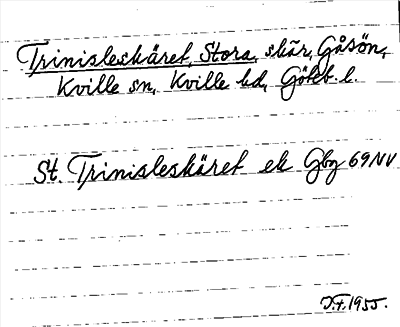 Trinisleskäret, Stora, skär, Gåsön,
Kville sn, Kville hd, Göteb. l.
St. Trinisleskäret ek Gbg 69 NV
T.f. 1955.